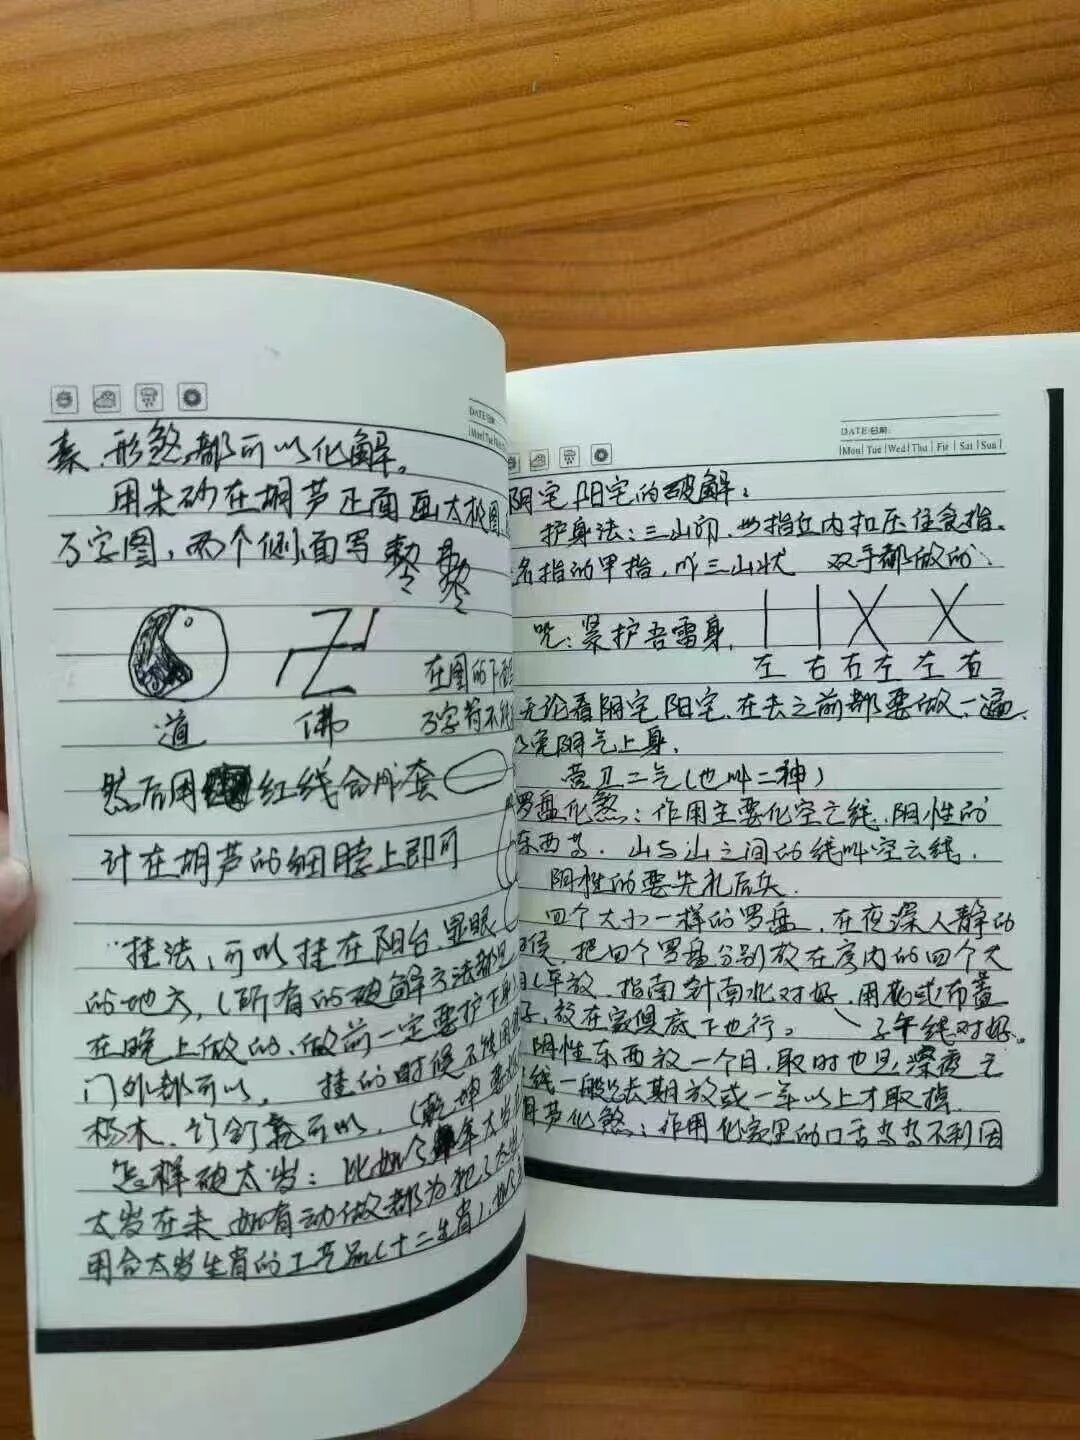 素、形煞、都可以化解。
用朱砂在胡芦正面画太极图
万字图，两个侧面写
道 佛
在图的下
万字符不
然后用 红线合成套
计在胡芦的细脖上即可
挂法，可以挂在阳台、显眼
的地方，（所有的破解方法都
在晚上做的、做前一定要护
门外都可以。 挂的时候不能用
杨木、钉 可以，（乾、坤
怎样破太岁：比如 年太岁
太岁在未 如有动做都为犯了太岁
用合太岁生肖的工艺品（十二生肖），
DATE日期:
Mon Tue Wed Thu Fir Sat Sun
阴宅 阳宅的破解：
护身法：三山印、 指立内扣压住食指、
名指的甲指，成三山状 双手都做的
咒：紧护吾雷身，
左 右 右 左 左 右
无论看阴宅 阳宅、在去之前都要做一遍、
以免阴气上身。
营卫二气（也叫二神）
罗盘化煞：作用主要化空亡线、阴性的
东西等． 山与山之间的线叫空亡线．
阴性的要先礼后兵．
四个大小一样的罗盘、在夜深人静的
时候，把四个罗盘分别放在房内的四个大
角（平放、指南针南北对好、用 布盖
子午线对好。
，放在家俱底下也行。
阴性东西放一个月、取时也是深夜
线一般 期放或一年以上才取掉．
胡芦化煞：作用化家里的口舌 不利因